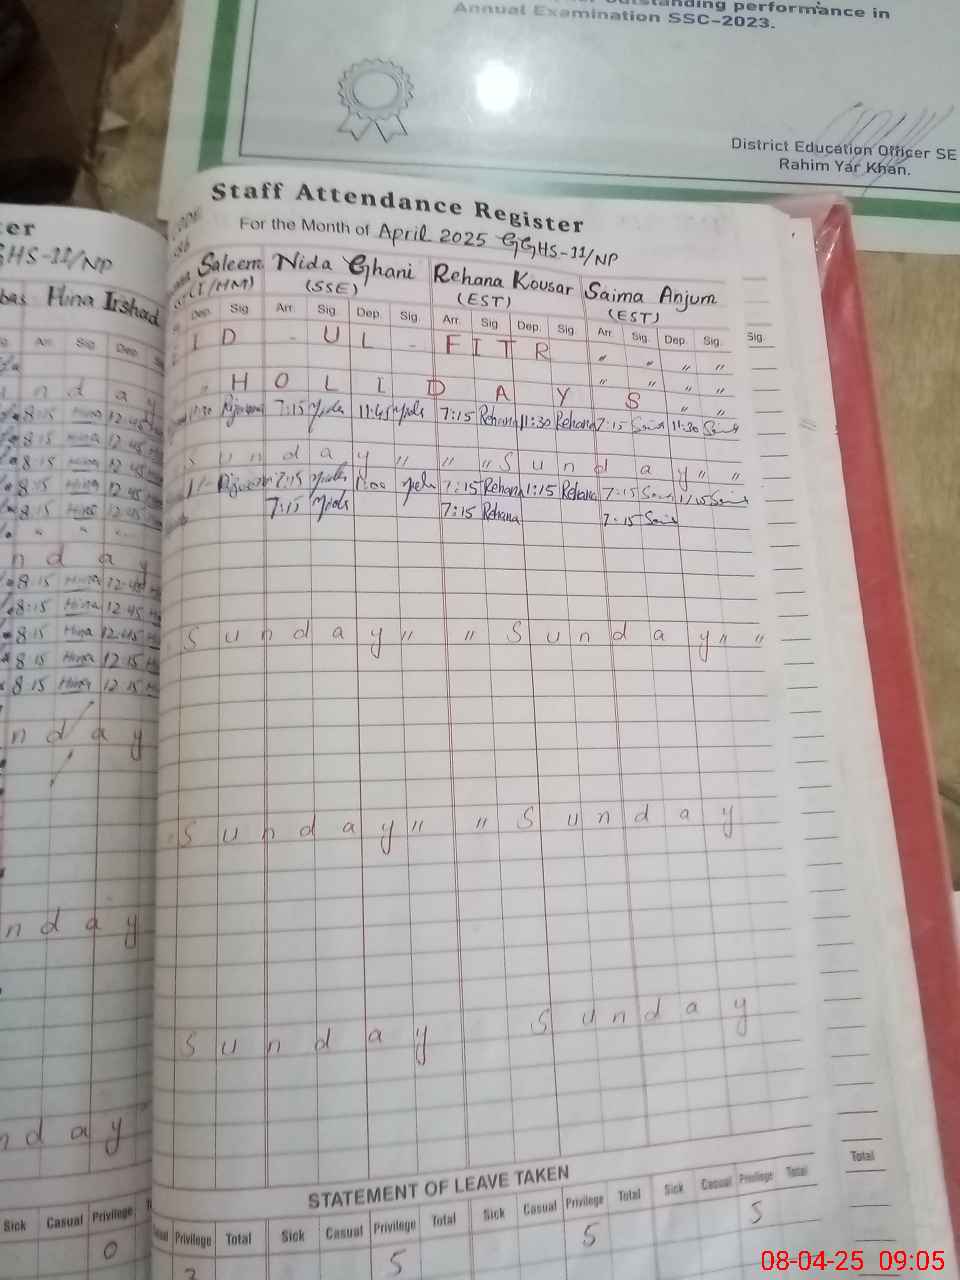 outstanding performance in
Annual Examination SSC-2023.
District Education Officer SE
Rahim Yar Khan.
Staff Attendance Register
For the Month of April 2025 GGHS-11/NP
GHS-11/NP
Saleem Nida Ghani Rehana Kousar Saima Anjum
(SSE) (EST) (EST)
Hina Irshad
Dep. Sig Arr. Sig. Dep. Sig. Arr. Sig. Dep. Sig. Arr. Sig. Dep. Sig. Sig.
Arr. Sig Dep.
I D - U L - F I T R " " " "
" H O L I D A Y S " " " "
7:15 Nida 11:45 Nida 7:15 Rehana 11:30 Rehana 7:15 Saima 11:30 Saima
S u n d a y " " " S u n d a y " "
7:15 Nida 7:15 Rehana 1:15 Rehana 7:15 Saima 1:15 Saima
7:15 Nida 7:15 Rehana 7:15 Saima
S u n d a y " " S u n d a y " "
S u n d a y " " S u n d a y
S u n d a y S u n d a y
8:15 Hina 12:45
8:15 Hina 12:45
8:15 Hina 12:45
8:15 Hina 12:45
8:15 Hina 12:45
n d a y
8:15 Hina 12:45
8:15 Hina 12:45
8:15 Hina 12:45
8:15 Hina 12:15
8:15 Hina 12:15
n d a y
n d a y
n d a y
STATEMENT OF LEAVE TAKEN
Sick Casual Privilege
Privilege Total Sick Casual Privilege Total Sick Casual Privilege Total Sick Casual Privilege Total
Total
0 5 5 5
08-04-25 09:05